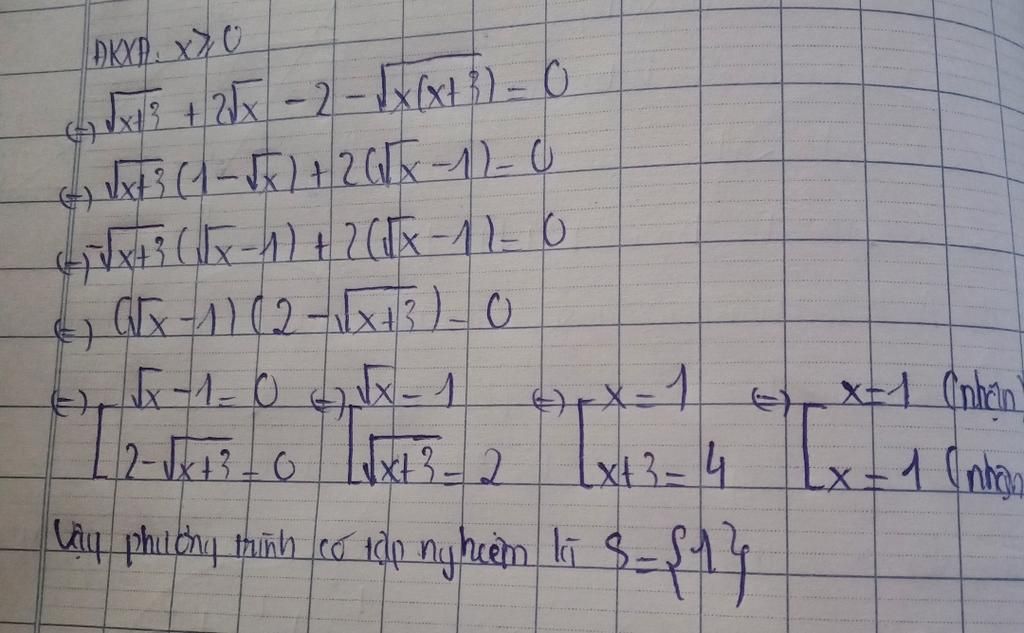 ĐKXĐ: x ≥ 0
⇔ √(x+3) + 2√x - 2 - √(x(x+3)) = 0
⇔ √(x+3) (1 - √x) + 2(√x - 1) = 0
⇔ -√(x+3) (√x - 1) + 2(√x - 1) = 0
⇔ (√x - 1) (2 - √(x+3)) = 0
⇔ [ √x - 1 = 0 ⇔ [ √x = 1 ⇔ [ x = 1 ⇔ [ x = 1 (nhận)
2 - √(x+3) = 0 √(x+3) = 2 x+3 = 4 x = 1 (nhận
Vậy phương trình có tập nghiệm là S = {1}